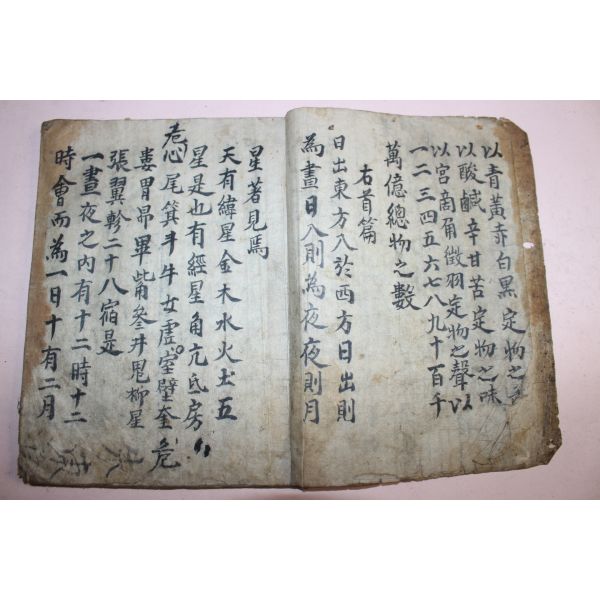 以青黃赤白黑定物之
以酸鹹辛甘苦定物之味
以宮商角徵羽定物之聲以
一二三四五六七八九十百千
萬億總物之數
右首篇
日出東方入於西方日出則
為晝日入則為夜夜則月
星著見焉
天有緯星金木水火土五
星是也有經星角亢氐房
心尾箕斗牛女虛室壁奎
危
婁胃昴畢觜參井鬼柳星
張翼軫二十八宿是
一晝夜之內有十二時十二
時會而為一日十有二月